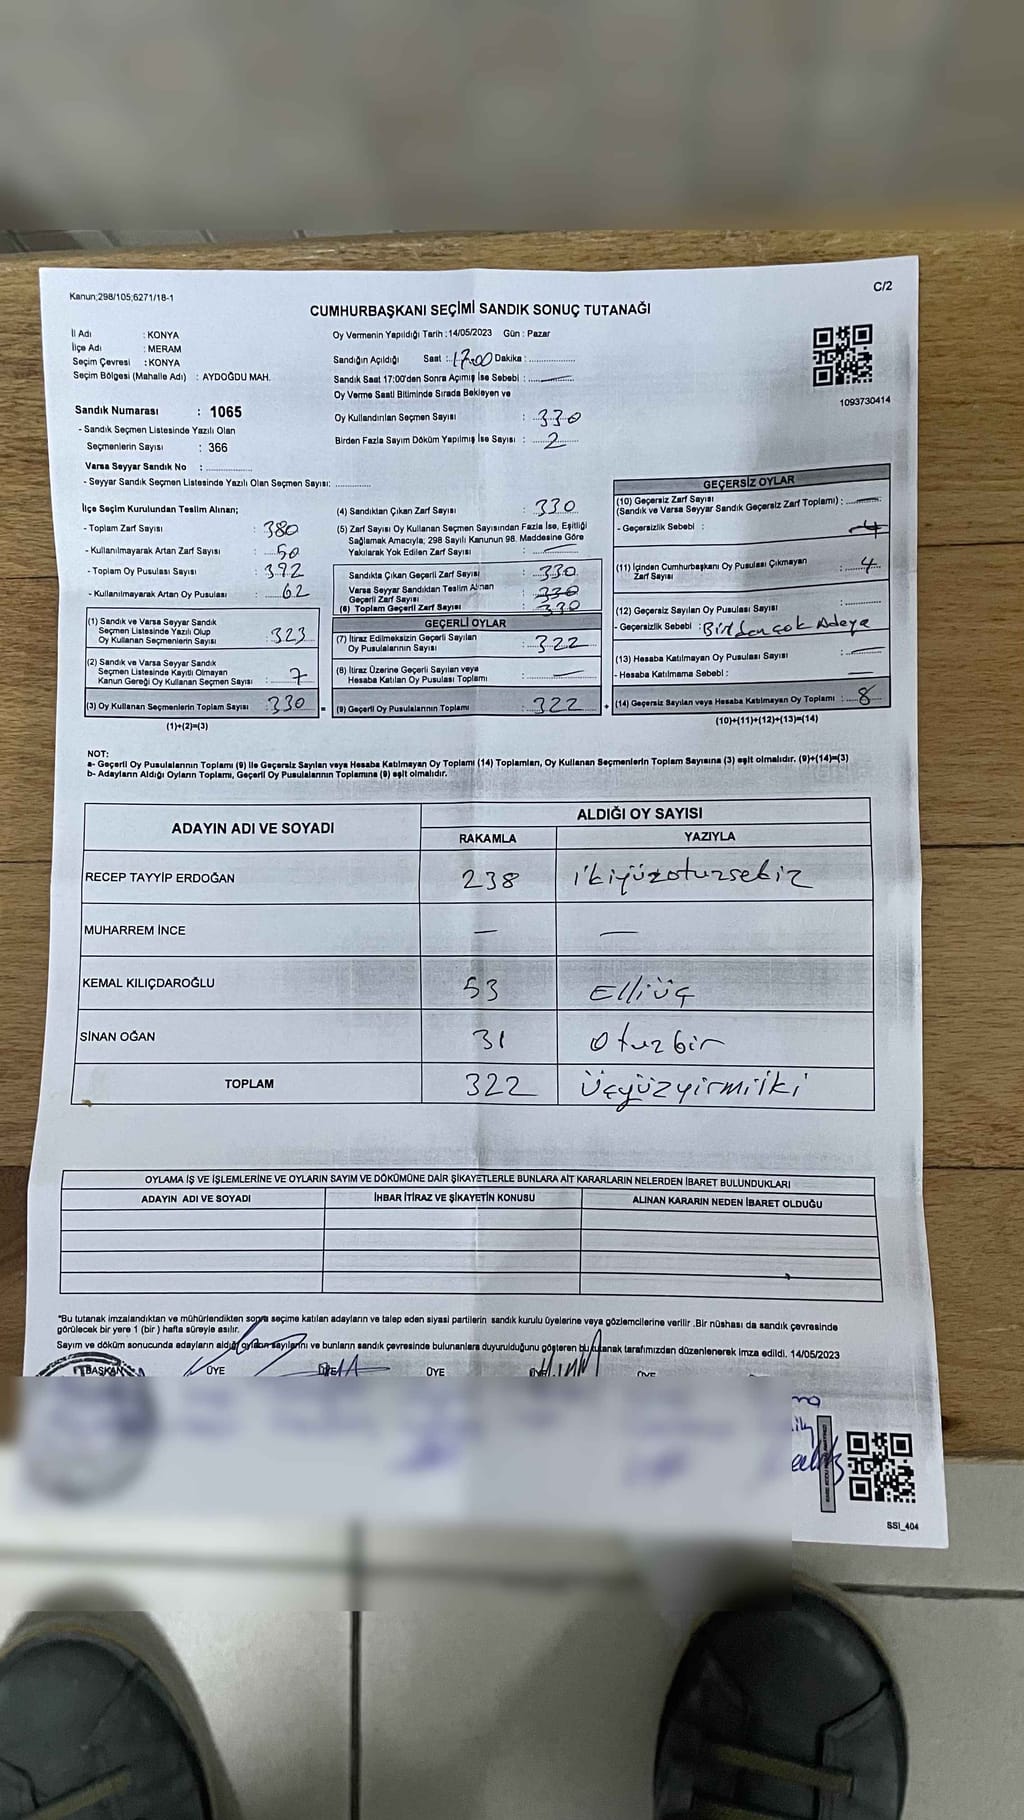 Kanun;298/105;6271/18-1
C/2
CUMHURBAŞKANI SEÇİMİ SANDIK SONUÇ TUTANAĞI
İl Adı : KONYA
İlçe Adı : MERAM
Seçim Çevresi : KONYA
Seçim Bölgesi (Mahalle Adı) : AYDOĞDU MAH.
Sandık Numarası : 1065
- Sandık Seçmen Listesinde Yazılı Olan
Seçmenlerin Sayısı : 366
Varsa Seyyar Sandık No :
- Seyyar Sandık Seçmen Listesinde Yazılı Olan Seçmen Sayısı:
Oy Vermenin Yapıldığı Tarih : 14/05/2023 Gün : Pazar
Sandığın Açıldığı Saat : 17:00 Dakika :
Sandık Saat 17:00'den Sonra Açımış İse Sebebi : —
Oy Verme Saati Bitiminde Sırada Bekleyen ve
Oy Kullandırılan Seçmen Sayısı : 330
Birden Fazla Sayım Döküm Yapılmış İse Sayısı : 2
1093730414
İlçe Seçim Kurulundan Teslim Alınan;
- Toplam Zarf Sayısı : 380
- Kullanılmayarak Artan Zarf Sayısı : 50
- Toplam Oy Pusulası Sayısı : 392
- Kullanılmayarak Artan Oy Pusulası : 62
(1) Sandık ve Varsa Seyyar Sandık
Seçmen Listesinde Yazılı Olup
Oy Kullanan Seçmenlerin Sayısı : 323
(2) Sandık ve Varsa Seyyar Sandık
Seçmen Listesinde Kayıtlı Olmayan
Kanun Gereği Oy Kullanan Seçmen Sayısı : 7
(3) Oy Kullanan Seçmenlerin Toplam Sayısı : 330
(1)+(2)=(3)
(4) Sandıktan Çıkan Zarf Sayısı : 330
(5) Zarf Sayısı Oy Kullanan Seçmen Sayısından Fazla İse, Eşitliği
Sağlamak Amacıyla; 298 Sayılı Kanunun 98. Maddesine Göre
Yakılarak Yok Edilen Zarf Sayısı : —
Sandıkta Çıkan Geçerli Zarf Sayısı : 330
Varsa Seyyar Sandıktan Teslim Alınan
Geçerli Zarf Sayısı : 330
(6) Toplam Geçerli Zarf Sayısı : 330
GEÇERLİ OYLAR
(7) İtiraz Edilmeksizin Geçerli Sayılan
Oy Pusulalarının Sayısı : 322
(8) İtiraz Üzerine Geçerli Sayılan veya
Hesaba Katılan Oy Pusulası Toplamı : —
(9) Geçerli Oy Pusulalarının Toplamı : 322
GEÇERSİZ OYLAR
(10) Geçersiz Zarf Sayısı
(Sandık ve Varsa Seyyar Sandık Geçersiz Zarf Toplamı) : —
- Geçersizlik Sebebi : 4
(11) İçinden Cumhurbaşkanı Oy Pusulası Çıkmayan
Zarf Sayısı : 4
(12) Geçersiz Sayılan Oy Pusulası Sayısı :
- Geçersizlik Sebebi : Birden çok Adaya
(13) Hesaba Katılmayan Oy Pusulası Sayısı : —
- Hesaba Katılmama Sebebi : —
(14) Geçersiz Sayılan veya Hesaba Katılmayan Oy Toplamı : 8
(10)+(11)+(12)+(13)=(14)
NOT:
a- Geçerli Oy Pusulalarının Toplamı (9) ile Geçersiz Sayılan veya Hesaba Katılmayan Oy Toplamı (14) Toplamları, Oy Kullanan Seçmenlerin Toplam Sayısına (3) eşit olmalıdır. (9)+(14)=(3)
b- Adayların Aldığı Oyların Toplamı, Geçerli Oy Pusulalarının Toplamına (9) eşit olmalıdır.
ADAYIN ADI VE SOYADI
ALDIĞI OY SAYISI
RAKAMLA YAZIYLA
RECEP TAYYİP ERDOĞAN 238 ikiyüzotuzsekiz
MUHARREM İNCE — —
KEMAL KILIÇDAROĞLU 53 Elliüç
SİNAN OĞAN 31 Otuzbir
TOPLAM 322 Üçyüzyirmiiki
OYLAMA İŞ VE İŞLEMLERİNE VE OYLARIN SAYIM VE DÖKÜMÜNE DAİR ŞİKAYETLERLE BUNLARA AİT KARARLARIN NELERDEN İBARET BULUNDUKLARI
ADAYIN ADI VE SOYADI İHBAR İTİRAZ VE ŞİKAYETİN KONUSU ALINAN KARARIN NEDEN İBARET OLDUĞU
*Bu tutanak imzalandıktan ve mühürlendikten sonra seçime katılan adayların ve talep eden siyasi partilerin sandık kurulu üyelerine veya gözlemcilerine verilir .Bir nüshası da sandık çevresinde
görülecek bir yere 1 (bir) hafta süreyle asılır.
Sayım ve döküm sonucunda adayların aldığı oyların sayılarını ve bunların sandık çevresinde bulunanlara duyurulduğunu gösteren bu tutanak tarafımızdan düzenlenerek imza edildi. 14/05/2023
BAŞKAN ÜYE ÜYE ÜYE ÜYE ÜYE
SSI_404